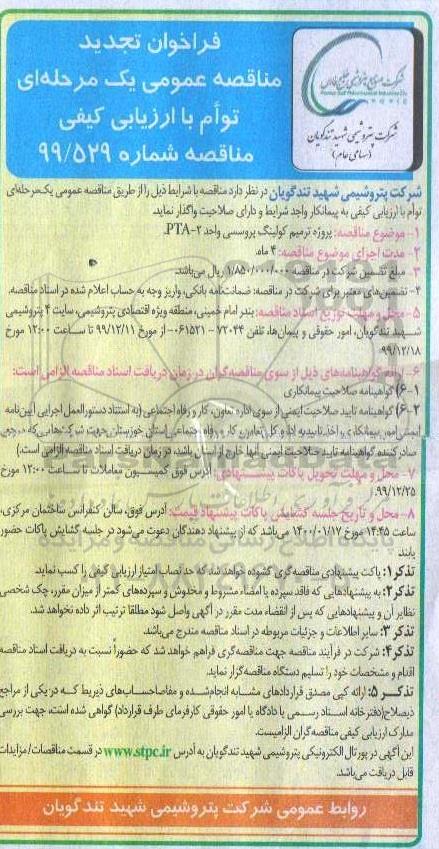 فراخوان تجدید
مناقصه عمومی یک مرحله‌ای
توأم با ارزیابی کیفی
مناقصه شماره ۹۹/۵۲۹
شرکت صنایع پتروشیمی خلیج فارس
شرکت پتروشیمی شهید تندگویان
(سهامی عام)
شرکت پتروشیمی شهید تندگویان در نظر دارد مناقصه با شرایط ذیل را از طریق مناقصه عمومی یک‌مرحله‌ای
توأم با ارزیابی کیفی به پیمانکار واجد شرایط و دارای صلاحیت واگذار نماید.
۱- موضوع مناقصه: پروژه ترمیم کولینگ پروسسی واحد PTA-۲.
۲- مدت اجرای موضوع مناقصه: ۴ ماه.
۳- مبلغ تضمین شرکت در مناقصه ۱/۸۵۰/۰۰۰/۰۰۰ ریال می‌باشد.
۴- تضمین‌های معتبر برای شرکت در مناقصه: ضمانتنامه بانکی، واریز وجه به حساب اعلام شده در اسناد مناقصه.
۵- محل و مهلت توزیع اسناد مناقصه: بندر امام خمینی، منطقه ویژه اقتصادی پتروشیمی، سایت ۴ پتروشیمی
شهید تندگویان، امور حقوقی و پیمان‌ها، تلفن ۷۲۰۴۴ - ۰۶۱۵۲۱ از مورخ ۹۹/۱۲/۱۱ تا ساعت ۱۲:۰۰ مورخ
۹۹/۱۲/۱۸
۶- ارائه گواهینامه‌های ذیل از سوی مناقصه‌گران در زمان دریافت اسناد مناقصه الزامی است:
۶-۱) گواهینامه صلاحیت پیمانکاری
۶-۲) گواهینامه تایید صلاحیت ایمنی از سوی اداره تعاون، کار و رفاه اجتماعی (به استناد دستورالعمل اجرایی آیین‌نامه
ایمنی امور پیمانکاری و اخذ تاییدیه اداره کل تعاون کار و رفاه اجتماعی استان خوزستان جهت شرکت‌هایی که مرجع
صادر کننده گواهینامه تایید صلاحیت ایمنی آنها خارج از استان باشد، در زمان دریافت اسناد مناقصه الزامی است.)
۷- محل و مهلت تحویل پاکات پیشنهادی: آدرس فوق کمیسیون معاملات تا ساعت ۱۲:۰۰ مورخ
۹۹/۱۲/۲۵
۸- محل و تاریخ جلسه گشایش پاکات پیشنهاد قیمت: آدرس فوق، سالن کنفرانس ساختمان مرکزی،
ساعت ۱۴:۴۵ مورخ ۱۴۰۰/۰۱/۱۷ می‌باشد که از پیشنهاد دهندگان دعوت می‌شود در جلسه گشایش پاکات حضور
یابند
تذکر۱: پاکت پیشنهادی مناقصه‌گری گشوده خواهد شد که حد نصاب امتیاز ارزیابی کیفی را کسب نماید.
تذکر۲: به پیشنهادهایی که فاقد سپرده یا امضاء مشروط و مخدوش و سپرده‌های کمتر از میزان مقرر، چک شخصی
نظایر آن و پیشنهادهایی که پس از انقضاء مدت مقرر در آگهی واصل شود مطلقا ترتیب اثر داده نخواهد شد.
تذکر ۳: سایر اطلاعات و جزئیات مربوطه در اسناد مناقصه مندرج می‌باشد.
تذکر۴: شرکت در فرآیند مناقصه جهت مناقصه‌گری فراهم خواهد شد که حضوراً نسبت به دریافت اسناد مناقصه
اقدام و مشخصات خود را تسلیم دستگاه مناقصه‌گزار نماید.
تذکر ۵: ارائه کپی مصدق قراردادهای مشابه انجام‌شده و مفاصاحساب‌های ذیربط که در یکی از مراجع
ذیصلاح(دفترخانه اسناد رسمی یا دادگاه یا امور حقوقی کارفرمای طرف قرارداد) گواهی شده است، جهت بررسی
مدارک ارزیابی کیفی مناقصه‌گران الزامیست.
این آگهی در پورتال الکترونیکی پتروشیمی شهید تندگویان به آدرس www.stpc.ir در قسمت مناقصات/مزایدات
قابل دریافت می‌باشد.
روابط عمومی شرکت پتروشیمی شهید تندگویان